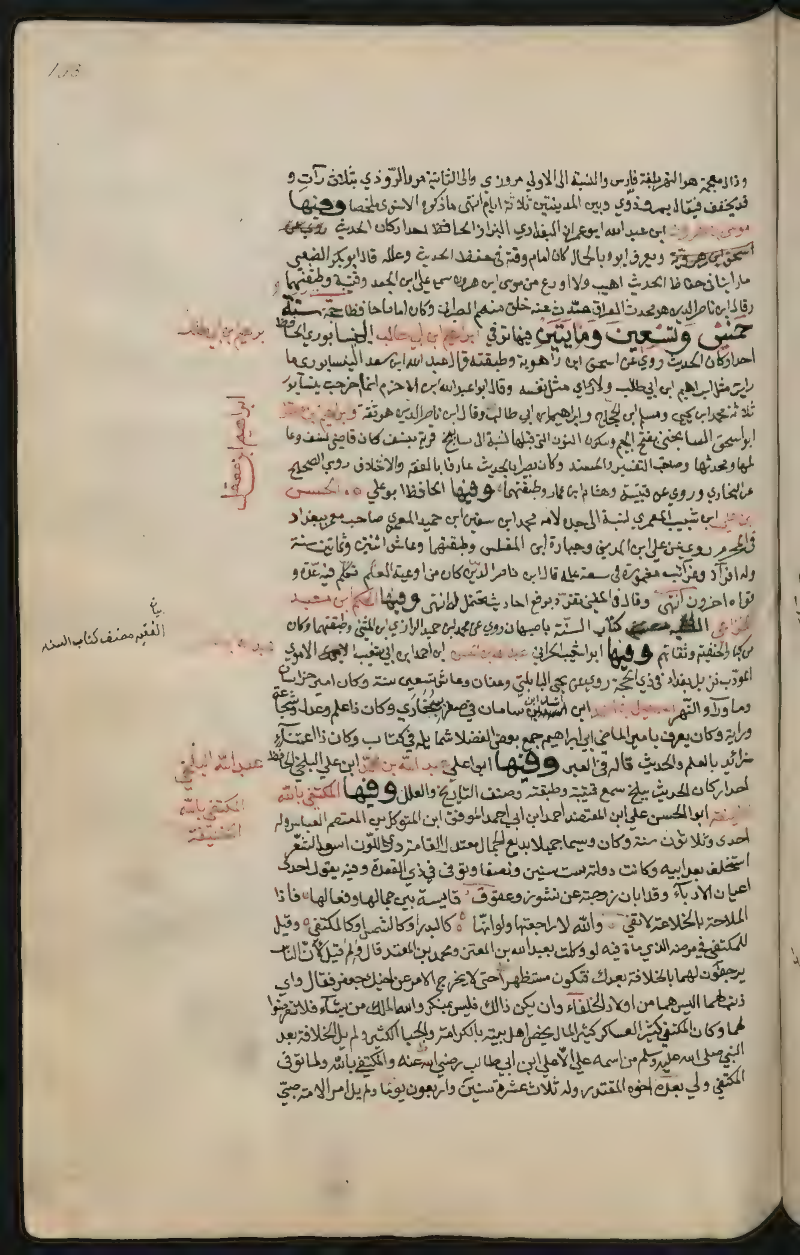 وذال معجمة هو النهر بلغة فارس والنسبة الى الاولى مروزي والى الثانية مروالروذي بثلاث رآت و
قد يخفف فيقال مروذي وبين المدينتين ثلاثة ايام انتهى ما ذكره الاسنوي ملخصا وفيها
موسى بن هرون ابن عبد الله ابو عمران البغدادي البزاز الحافظ احد اركان الحديث روى عن
ويعرف ابوه بالحمال كان امام وقته في حفظ الحديث وعلله قال ابو بكر الضبعي
ما راينا في حفاظ الحديث اهيب ولا اورع من موسى ابن هرون سمع علي ابن الجعد وقتيبة وطبقتهما
وقال ابن ناصر الدين هو محدث العراق حدث عنه خلق منهم الطبراني وكان اماما حافظا حجة سنة
خمس وتسعين ومايتين فيها توفي ابراهيم ابن ابي طالب النيسابوري الحافظ
احد اركان الحديث روى عن اسحق ابن راهوية وطبقته قال عبد الله ابن سعد النيسابوري ما
رايت مثل ابراهيم ابن ابي طالب ولا راى مثل نفسه وقال ابو عبد الله بن الاخرم انما اخرجت نيسابور
ثلاثة محمد ابن يحيى ومسلم ابن الحجاج وابراهيم ابن ابي طالب وقال ابن ناصر الدين هو ثقة وابراهيم بن معقل
ابو اسحق السانجني بفتح الجيم وسكون النون التي قبلها نسبة الى سانجن قرية بنسف كان قاضي نسف وعا
لمها ومحدثها وصاحب التفسير والمسند وكان بصيرا بالحديث عارفا بالفقه والاختلاف روى الصحيح
عن البخاري وروى عن قتيبة وهشام ابن عمار وطبقتهما وفيها الحافظ ابو علي الحسن
بن علي ابن شبيب المعمري نسبة الى جده لامه محمد ابن سفين ابن حميد المعمري صاحب معمر ببغداد
في المحرم روى عن علي ابن المديني وجبارة ابن المغلس وطبقتهما وعاش اثنين وثمانين سنة
وله افراد وغرائب مغمورة في سعة علمه قال ابن ناصر الدين كان من اوعية العلم تكلم فيه عدة و
قواه اخرون انتهى وقال في المغني تفرد برفع احاديث تحتمل له انتهى وفيها الحكم ابن معبد
الخزاعي الفقيه مصنف كتاب السنة باصبهان روى عن محمد ابن حميد الرازي ابن المثنى وطبقتهما وكان
من كبار الحنفية وثقاتهم وفيها ابو شعيب الحراني عبد الله بن الحسن ابن احمد ابن ابي شعيب الاموي
المؤدب نزيل بغداد في ذي الحجة روى عن يحيى البابلتي وعفان وعاش تسعين سنة وكان امير خراسان
وما ورآء النهر اسمعيل بن احمد ابن اسد ابن سامان في صفر ببخارى وكان ذا علم وعدل وشجاعة
وراية وكان يعرف بالامير الماضي ابي ابراهيم جمع بعض الفضلا شمايله في كتاب وكان ذا اعتنآء
زائد بالعلم والحديث قاله في العبر وفيها ابو علي عبد الله بن محمد ابن علي البلخي الحافظ
احد اركان الحديث ببلخ سمع قتيبة وطبقته وصنف التاريخ والعلل وفيها المكتفي بالله
الخليفة ابو الحسن علي ابن المعتضد احمد ابن ابي احمد الموفق ابن المتوكل بن المعتصم العباسي وله
احدى وثلاثون سنة وكان وسيما جميلا بديع الجمال معتدل القامة دري اللون اسود الشعر
استخلف بعد ابيه وكانت دولته ست سنين ونصفا وتوفي في ذي القعدة وفيه يقول احد
اعيان الادبآء وقد ابان زوجته عن نشوز وعقوق قايست بين جمالها وفعالها فاذا
الملاحة بالخلاعة لا تفي والله لا راجعتها ولو انها كالبدر او كالشمس او كالمكتفي وقيل
للمكتفي في مرضه الذي مات فيه لو وكلت بعبد الله بن المعتز ومحمد بن المعتمد قال ولم قيل لان الناس
يرجفون لهما بالخلافة بعدك فتكون مستظهرا حتى لا يخرج الامر عن اخيك جعفر فقال واي
ذنب لهما اليس هما من اولاد الخلفآء وان يكن ذالك فليس بمنكر والله الملك من يشآء فلا تعرضوا
لهما وكان المكتفي كثير العساكر كثير المال يخص اهل بيته بالكرامة والحبا الكثير ولم يل الخلافة بعد
النبي صلى الله عليه وسلم من اسمه علي الا علي ابن ابي طالب رضي الله عنه والمكتفي بالله ولما توفي
المكتفي ولي بعده اخوه المقتدر وله ثلاث عشرة سنين واربعون يوما ولم يل امر الامة صبي
ابراهيم بن ابي طالب
ابراهيم بن معقل
الفقيه مصنف كتاب السنه
عبد الله البلخي
المكتفي بالله
الخليفة